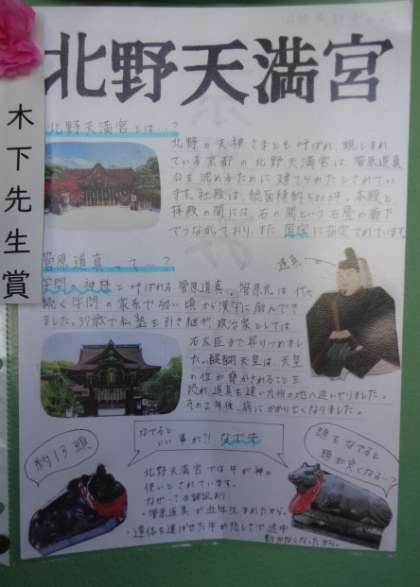 北野天満宮
木下先生賞
北野天満宮とは…?
北野の天神さまとも呼ばれ、親しまれ
ている京都の北野天満宮は菅原道真
公を
ために建てられたとされてい
ます。社殿は、総面積約500坪、本殿と
拝殿の間には、石の間という石畳の廊下
でつながっており、また国宝に指定されています。
菅原道真って…?
道真
学問の神様と呼ばれる菅原道真。菅原氏は代々
続く学問の家系で幼い頃から漢字に励んでき
ました。
歳で私塾を引き継ぎ政治家としては
右大臣まで昇りつめまし
た。醍醐天皇は、天皇
の位が脅かされることを
恐れ道真を遠い九州の地へ追いやりました。
その2年後、病にかかり亡くなりました。
なでると
いい事が?!
なで牛
約13頭
頭をなでると
頭が良くなる…?
北野天満宮では牛が神の
使いとされています。
なぜ…?の諸説あり
・菅原道真が丑年生まれだから。
・遺体を運ばせた牛が
途中
動かなくなったから。